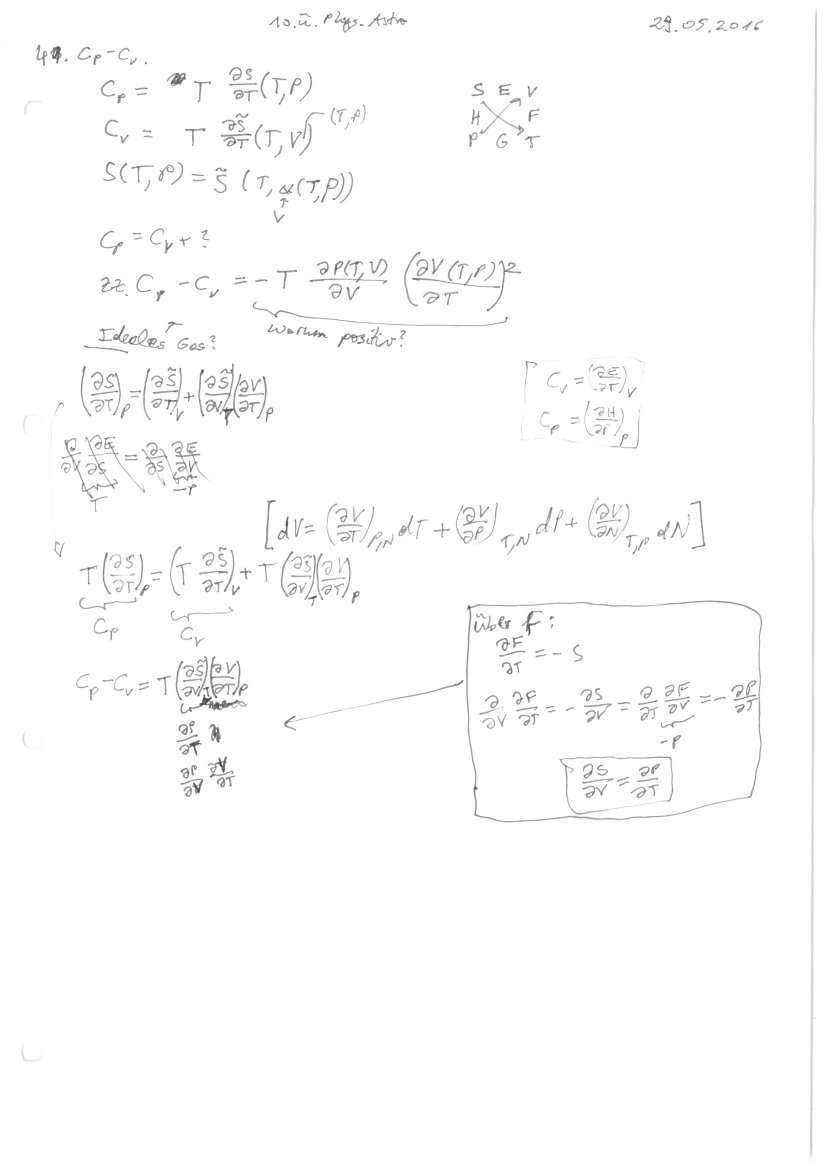 10. Ü. Phys. Astro 29.05.2016
41. Cp-Cv.
Cp = T ∂S/∂T (T,P)
Cv = T ∂S̃/∂T (T,V) (T,P)
S E V
H F
P G T
S(T,P) = S̃ (T, α(T,P))
↑
V
Cp = Cv + ?
zz. Cp - Cv = -T ∂P(T,V)/∂V (∂V(T,P)/∂T)²
Warum positiv?
Ideales Gas?
(∂S/∂T)P = (∂S̃/∂T)V + (∂S̃/∂V)T (∂V/∂T)P
Cv = (∂E/∂T)V
Cp = (∂H/∂P)P
∂/∂V ∂E/∂S = ∂/∂S ∂E/∂V
T -P
[dV = (∂V/∂T)P,N dT + (∂V/∂P)T,N dP + (∂V/∂N)T,P dN]
T (∂S/∂T)P = (T ∂S̃/∂T)V + T (∂S̃/∂V)T (∂V/∂T)P
Cp Cv
Cp - Cv = T (∂S̃/∂V)T (∂V/∂T)P
∂P/∂T
∂P/∂V ∂V/∂T
über F:
∂F/∂T = - S
∂/∂V ∂F/∂T = - ∂S/∂V = ∂/∂T ∂F/∂V = - ∂P/∂T
-P
∂S/∂V = ∂P/∂T